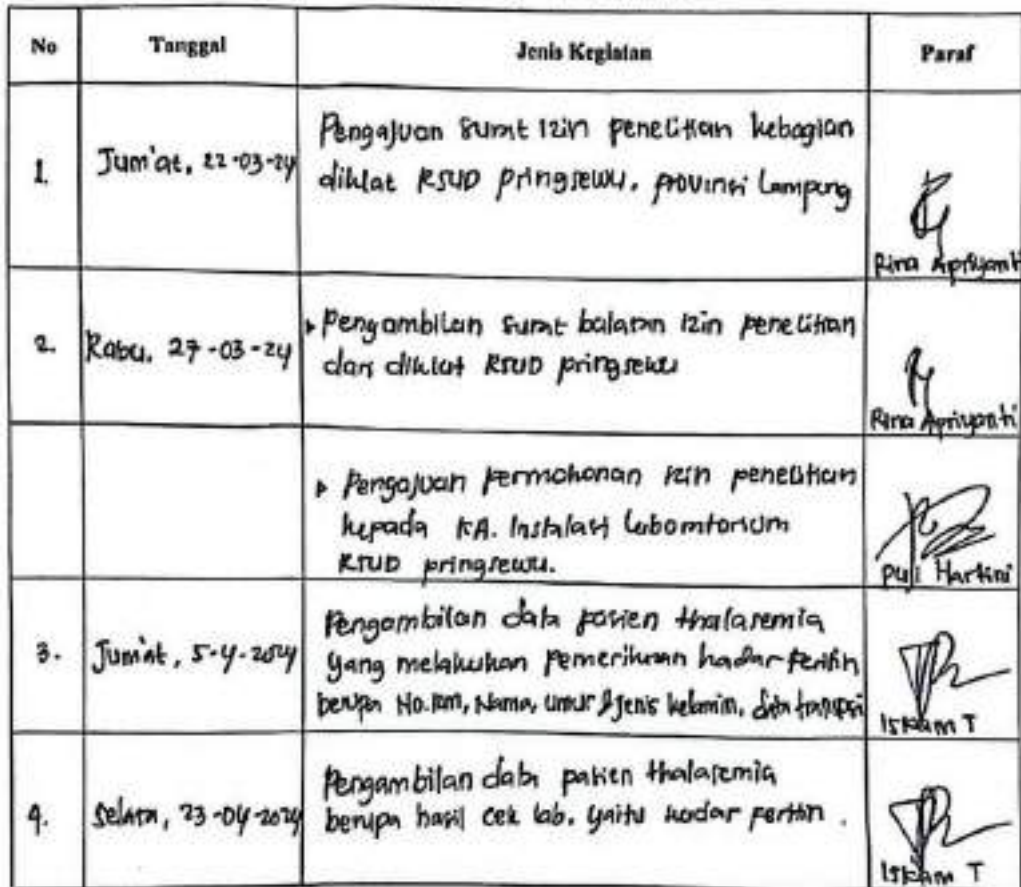 No Tanggal Jenis Kegiatan Paraf
1. Jum'at, 22-03-24
Pengajuan Surat izin penelitian kebagian
diklat RSUD pringsewu. provinsi Lampung
Rina Apriyanti
2. Rabu, 27-03-24
Pengambilan surat balasan izin penelitian
dari diklat RSUD pringsewu
Rina Apriyanti
Pengajuan permohonan izin penelitian
kepada KA. Instalasi Laboratorium
RSUD pringsewu.
Puji Hartini
3. Jum'at, 5-4-2024
Pengambilan data pasien thalasemia
yang melakukan pemeriksaan kadar feritin
berupa No.RM, Nama, umur & jenis kelamin, data transfusi
Iskam T
4. Selasa, 23-04-2024
Pengambilan data pasien thalasemia
berupa hasil cek lab. yaitu kadar feritin.
Iskam T